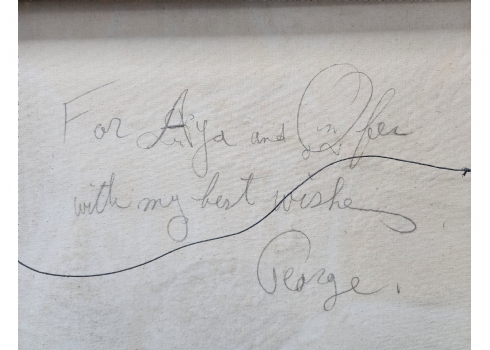 For Aya and Ofer
with my best wishes
George.